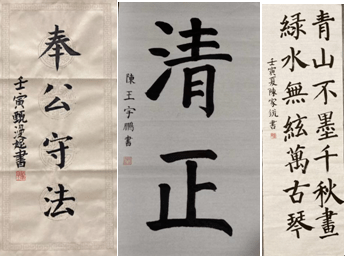 奉公守法
壬寅甄漫書
清正
陳王宇鵬書
青山不墨千秋畫
綠水無絃萬古琴
壬寅夏陳家書